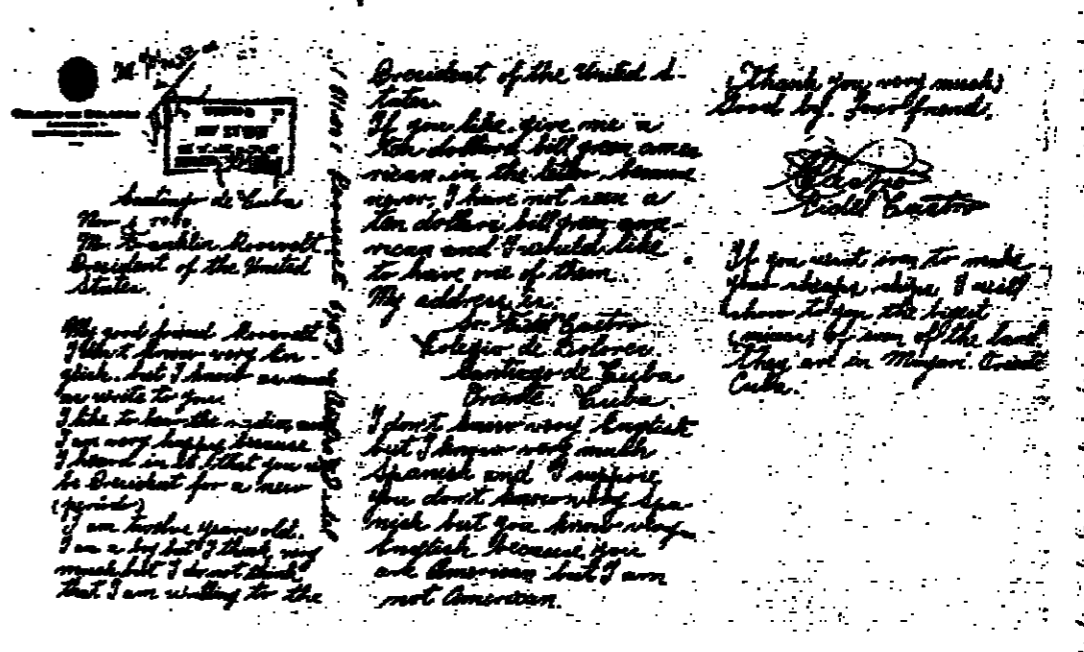 Santiago de Cuba
Nov 6 1940.
Mr. Franklin Roosevelt
President of the United
States.
My good friend Roosevelt
I don't know very En-
glish, but I know as much
as write to you.
I like to hear the radio, and
I am very happy, because
I heard in it, that you will
be President for a new
(período)
I am twelve years old.
I am a boy but I think very
much but I do not think
that I am writting to the
President of the United S-
tates.
If you like, give me a
ten dollars bill green ame-
rican, in the letter, because
never, I have not seen a
ten dollars bill green ame-
rican and I would like
to have one of them.
My address is:
Sr. Fidel Castro
Colegio de Dolores.
Santiago de Cuba
Oriente. Cuba.
I don't know very English
but I know very much
Spanish and I suppose
you don't know very Spa-
nish but you know very
English because you
are American but I am
not American.
(Thank you very much)
Good by. Your friend,
Castro
Fidel Castro
If you want iron to make
your sheaps ships I will
show to you the bigest
(minas) of iron of the land.
They are in Mayari. Oriente
Cuba.